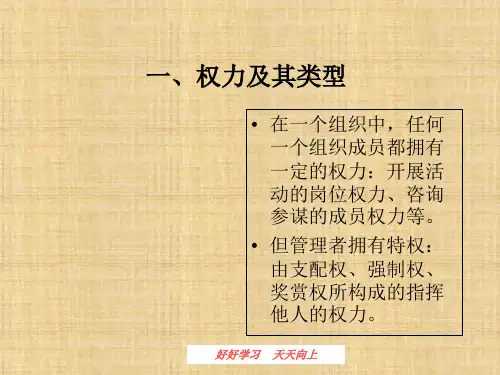 一、权力及其类型
• 在一个组织中，任何
一个组织成员都拥有
一定的权力：开展活
动的岗位权力、咨询
参谋的成员权力等。
• 但管理者拥有特权：
由支配权、强制权、
奖赏权所构成的指挥
他人的权力。
好好学习 天天向上